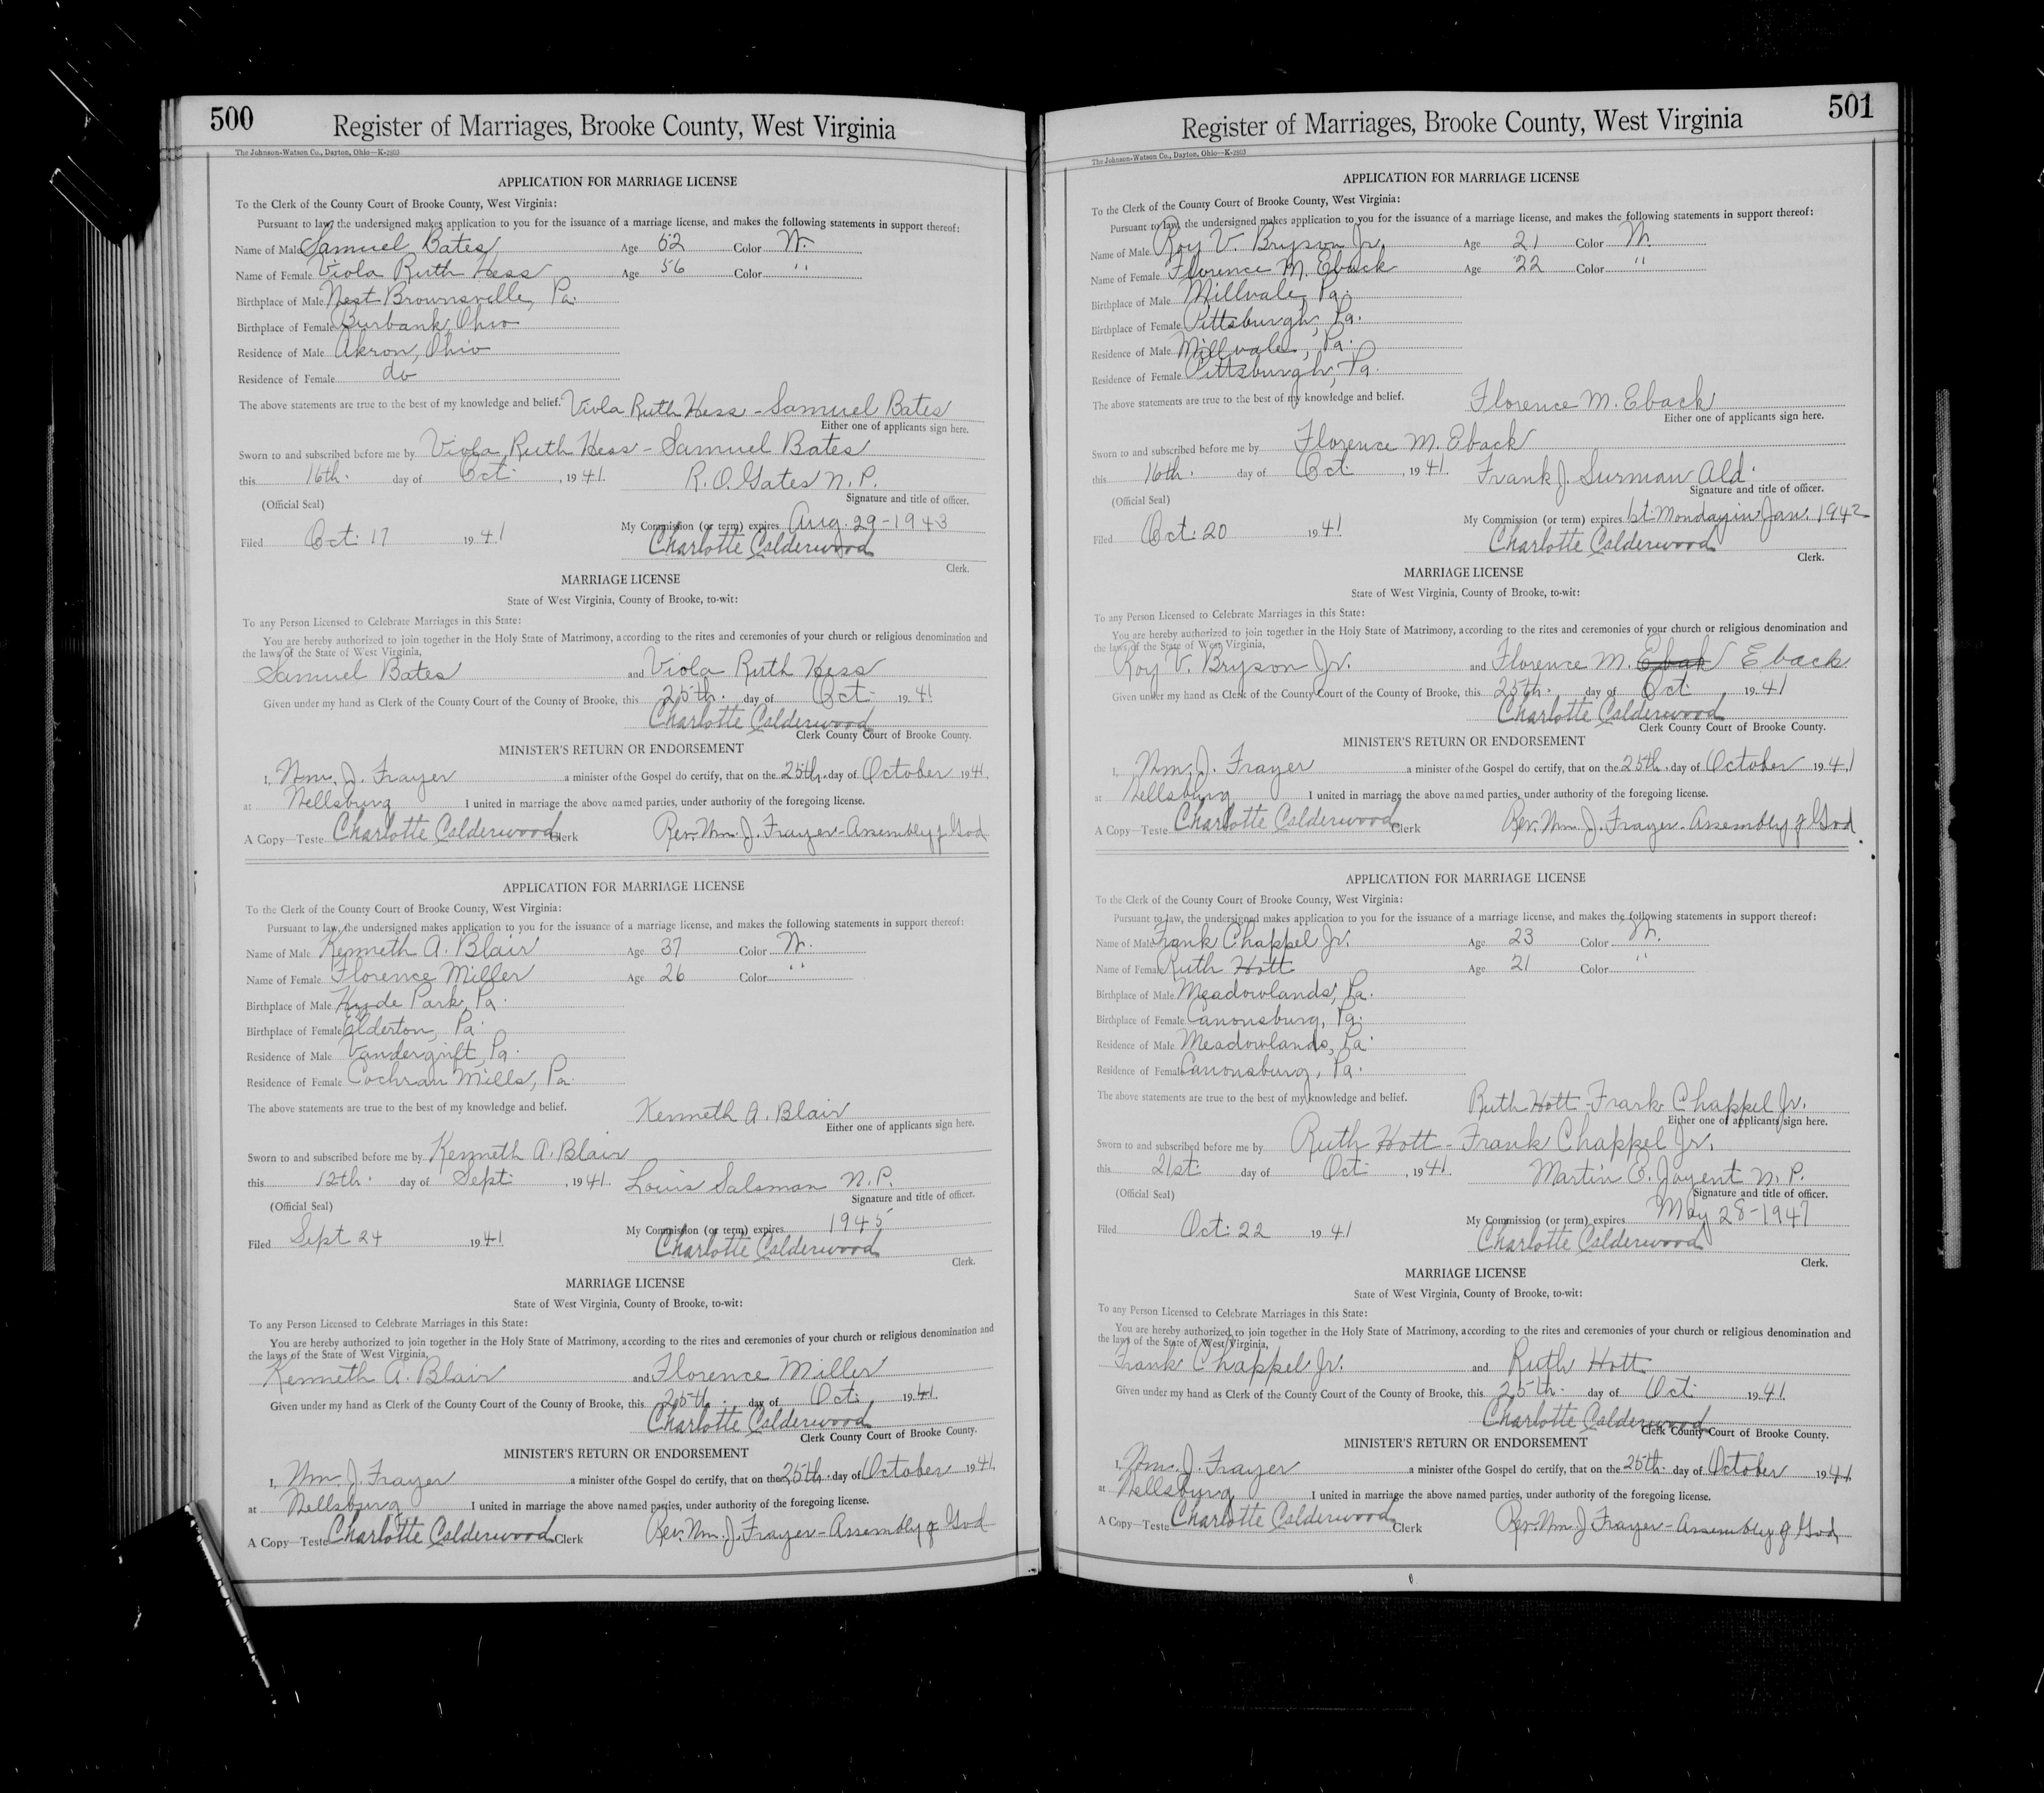 500
Register of Marriages, Brooke County, West Virginia
The Johnson-Watson Co., Dayton, Ohio—K-2903
APPLICATION FOR MARRIAGE LICENSE
To the Clerk of the County Court of Brooke County, West Virginia:
Pursuant to law, the undersigned makes application to you for the issuance of a marriage license, and makes the following statements in support thereof:
Name of Male Samuel Bates Age 62 Color W.
Name of Female Viola Ruth Hess Age 56 Color "
Birthplace of Male West Brownsville, Pa.
Birthplace of Female Burbank, Ohio
Residence of Male Akron, Ohio
Residence of Female do
The above statements are true to the best of my knowledge and belief. Viola Ruth Hess - Samuel Bates
Either one of applicants sign here.
Sworn to and subscribed before me by Viola Ruth Hess - Samuel Bates
this 16th. day of Oct. , 1941. R. O. Gates N. P.
(Official Seal) Signature and title of officer.
My Commission (or term) expires Aug. 29-1943
Filed Oct. 17 1941 Charlotte Calderwood
Clerk.
MARRIAGE LICENSE
State of West Virginia, County of Brooke, to-wit:
To any Person Licensed to Celebrate Marriages in this State:
You are hereby authorized to join together in the Holy State of Matrimony, according to the rites and ceremonies of your church or religious denomination and
the laws of the State of West Virginia,
Samuel Bates and Viola Ruth Hess
Given under my hand as Clerk of the County Court of the County of Brooke, this 25th. day of Oct. 1941
Charlotte Calderwood
Clerk County Court of Brooke County.
MINISTER'S RETURN OR ENDORSEMENT
I, Wm. J. Frayer a minister of the Gospel do certify, that on the 25th. day of October 1941.
at Wellsburg I united in marriage the above named parties, under authority of the foregoing license.
A Copy—Teste Charlotte Calderwood Clerk Rev. Wm. J. Frayer - Assembly of God
APPLICATION FOR MARRIAGE LICENSE
To the Clerk of the County Court of Brooke County, West Virginia:
Pursuant to law, the undersigned makes application to you for the issuance of a marriage license, and makes the following statements in support thereof:
Name of Male Kenneth A. Blair Age 37 Color W.
Name of Female Florence Miller Age 26 Color "
Birthplace of Male Hyde Park, Pa.
Birthplace of Female Elderton, Pa.
Residence of Male Vandergrift, Pa.
Residence of Female Cochran Mills, Pa.
The above statements are true to the best of my knowledge and belief. Kenneth A. Blair
Either one of applicants sign here.
Sworn to and subscribed before me by Kenneth A. Blair
this 12th. day of Sept. , 1941. Louis Salsman N. P.
(Official Seal) Signature and title of officer.
My Commission (or term) expires 1945
Filed Sept 24 1941 Charlotte Calderwood
Clerk.
MARRIAGE LICENSE
State of West Virginia, County of Brooke, to-wit:
To any Person Licensed to Celebrate Marriages in this State:
You are hereby authorized to join together in the Holy State of Matrimony, according to the rites and ceremonies of your church or religious denomination and
the laws of the State of West Virginia,
Kenneth A. Blair and Florence Miller
Given under my hand as Clerk of the County Court of the County of Brooke, this 25th. day of Oct. 1941.
Charlotte Calderwood
Clerk County Court of Brooke County.
MINISTER'S RETURN OR ENDORSEMENT
I, Wm. J. Frayer a minister of the Gospel do certify, that on the 25th. day of October 1941.
at Wellsburg I united in marriage the above named parties, under authority of the foregoing license.
A Copy—Teste Charlotte Calderwood Clerk Rev. Wm. J. Frayer - Assembly of God
501
Register of Marriages, Brooke County, West Virginia
The Johnson-Watson Co., Dayton, Ohio—K-2903
APPLICATION FOR MARRIAGE LICENSE
To the Clerk of the County Court of Brooke County, West Virginia:
Pursuant to law, the undersigned makes application to you for the issuance of a marriage license, and makes the following statements in support thereof:
Name of Male Roy V. Bryson Jr. Age 21 Color W.
Name of Female Florence M. Eback Age 22 Color "
Birthplace of Male Millvale, Pa.
Birthplace of Female Pittsburgh, Pa.
Residence of Male Millvale, Pa.
Residence of Female Pittsburgh, Pa.
The above statements are true to the best of my knowledge and belief. Florence M. Eback
Either one of applicants sign here.
Sworn to and subscribed before me by Florence M. Eback
this 16th. day of Oct. , 1941. Frank J. Surman Ald.
(Official Seal) Signature and title of officer.
My Commission (or term) expires 1st. Monday in Jan. 1942
Filed Oct. 20 1941 Charlotte Calderwood
Clerk.
MARRIAGE LICENSE
State of West Virginia, County of Brooke, to-wit:
To any Person Licensed to Celebrate Marriages in this State:
You are hereby authorized to join together in the Holy State of Matrimony, according to the rites and ceremonies of your church or religious denomination and
the laws of the State of West Virginia,
Roy V. Bryson Jr. and Florence M. Ebak Eback
Given under my hand as Clerk of the County Court of the County of Brooke, this 25th. day of Oct. 1941
Charlotte Calderwood
Clerk County Court of Brooke County.
MINISTER'S RETURN OR ENDORSEMENT
I, Wm. J. Frayer a minister of the Gospel do certify, that on the 25th. day of October 1941
at Wellsburg I united in marriage the above named parties, under authority of the foregoing license.
A Copy—Teste Charlotte Calderwood Clerk Rev. Wm. J. Frayer - Assembly of God
APPLICATION FOR MARRIAGE LICENSE
To the Clerk of the County Court of Brooke County, West Virginia:
Pursuant to law, the undersigned makes application to you for the issuance of a marriage license, and makes the following statements in support thereof:
Name of Male Frank Chappel Jr. Age 23 Color W.
Name of Female Ruth Hott Age 21 Color "
Birthplace of Male Meadowlands, Pa.
Birthplace of Female Canonsburg, Pa.
Residence of Male Meadowlands, Pa.
Residence of Female Canonsburg, Pa.
The above statements are true to the best of my knowledge and belief. Ruth Hott - Frank Chappel Jr.
Either one of applicants sign here.
Sworn to and subscribed before me by Ruth Hott - Frank Chappel Jr.
this 21st. day of Oct. , 1941. Martin E. N. P.
(Official Seal) Signature and title of officer.
My Commission (or term) expires May 28-1947
Filed Oct. 22 1941 Charlotte Calderwood
Clerk.
MARRIAGE LICENSE
State of West Virginia, County of Brooke, to-wit:
To any Person Licensed to Celebrate Marriages in this State:
You are hereby authorized to join together in the Holy State of Matrimony, according to the rites and ceremonies of your church or religious denomination and
the laws of the State of West Virginia,
Frank Chappel Jr. and Ruth Hott
Given under my hand as Clerk of the County Court of the County of Brooke, this 25th. day of Oct. 1941.
Charlotte Calderwood
Clerk County Court of Brooke County.
MINISTER'S RETURN OR ENDORSEMENT
I, Wm. J. Frayer a minister of the Gospel do certify, that on the 25th. day of October 1941.
at Wellsburg I united in marriage the above named parties, under authority of the foregoing license.
A Copy—Teste Charlotte Calderwood Clerk Rev. Wm. J. Frayer - Assembly of God